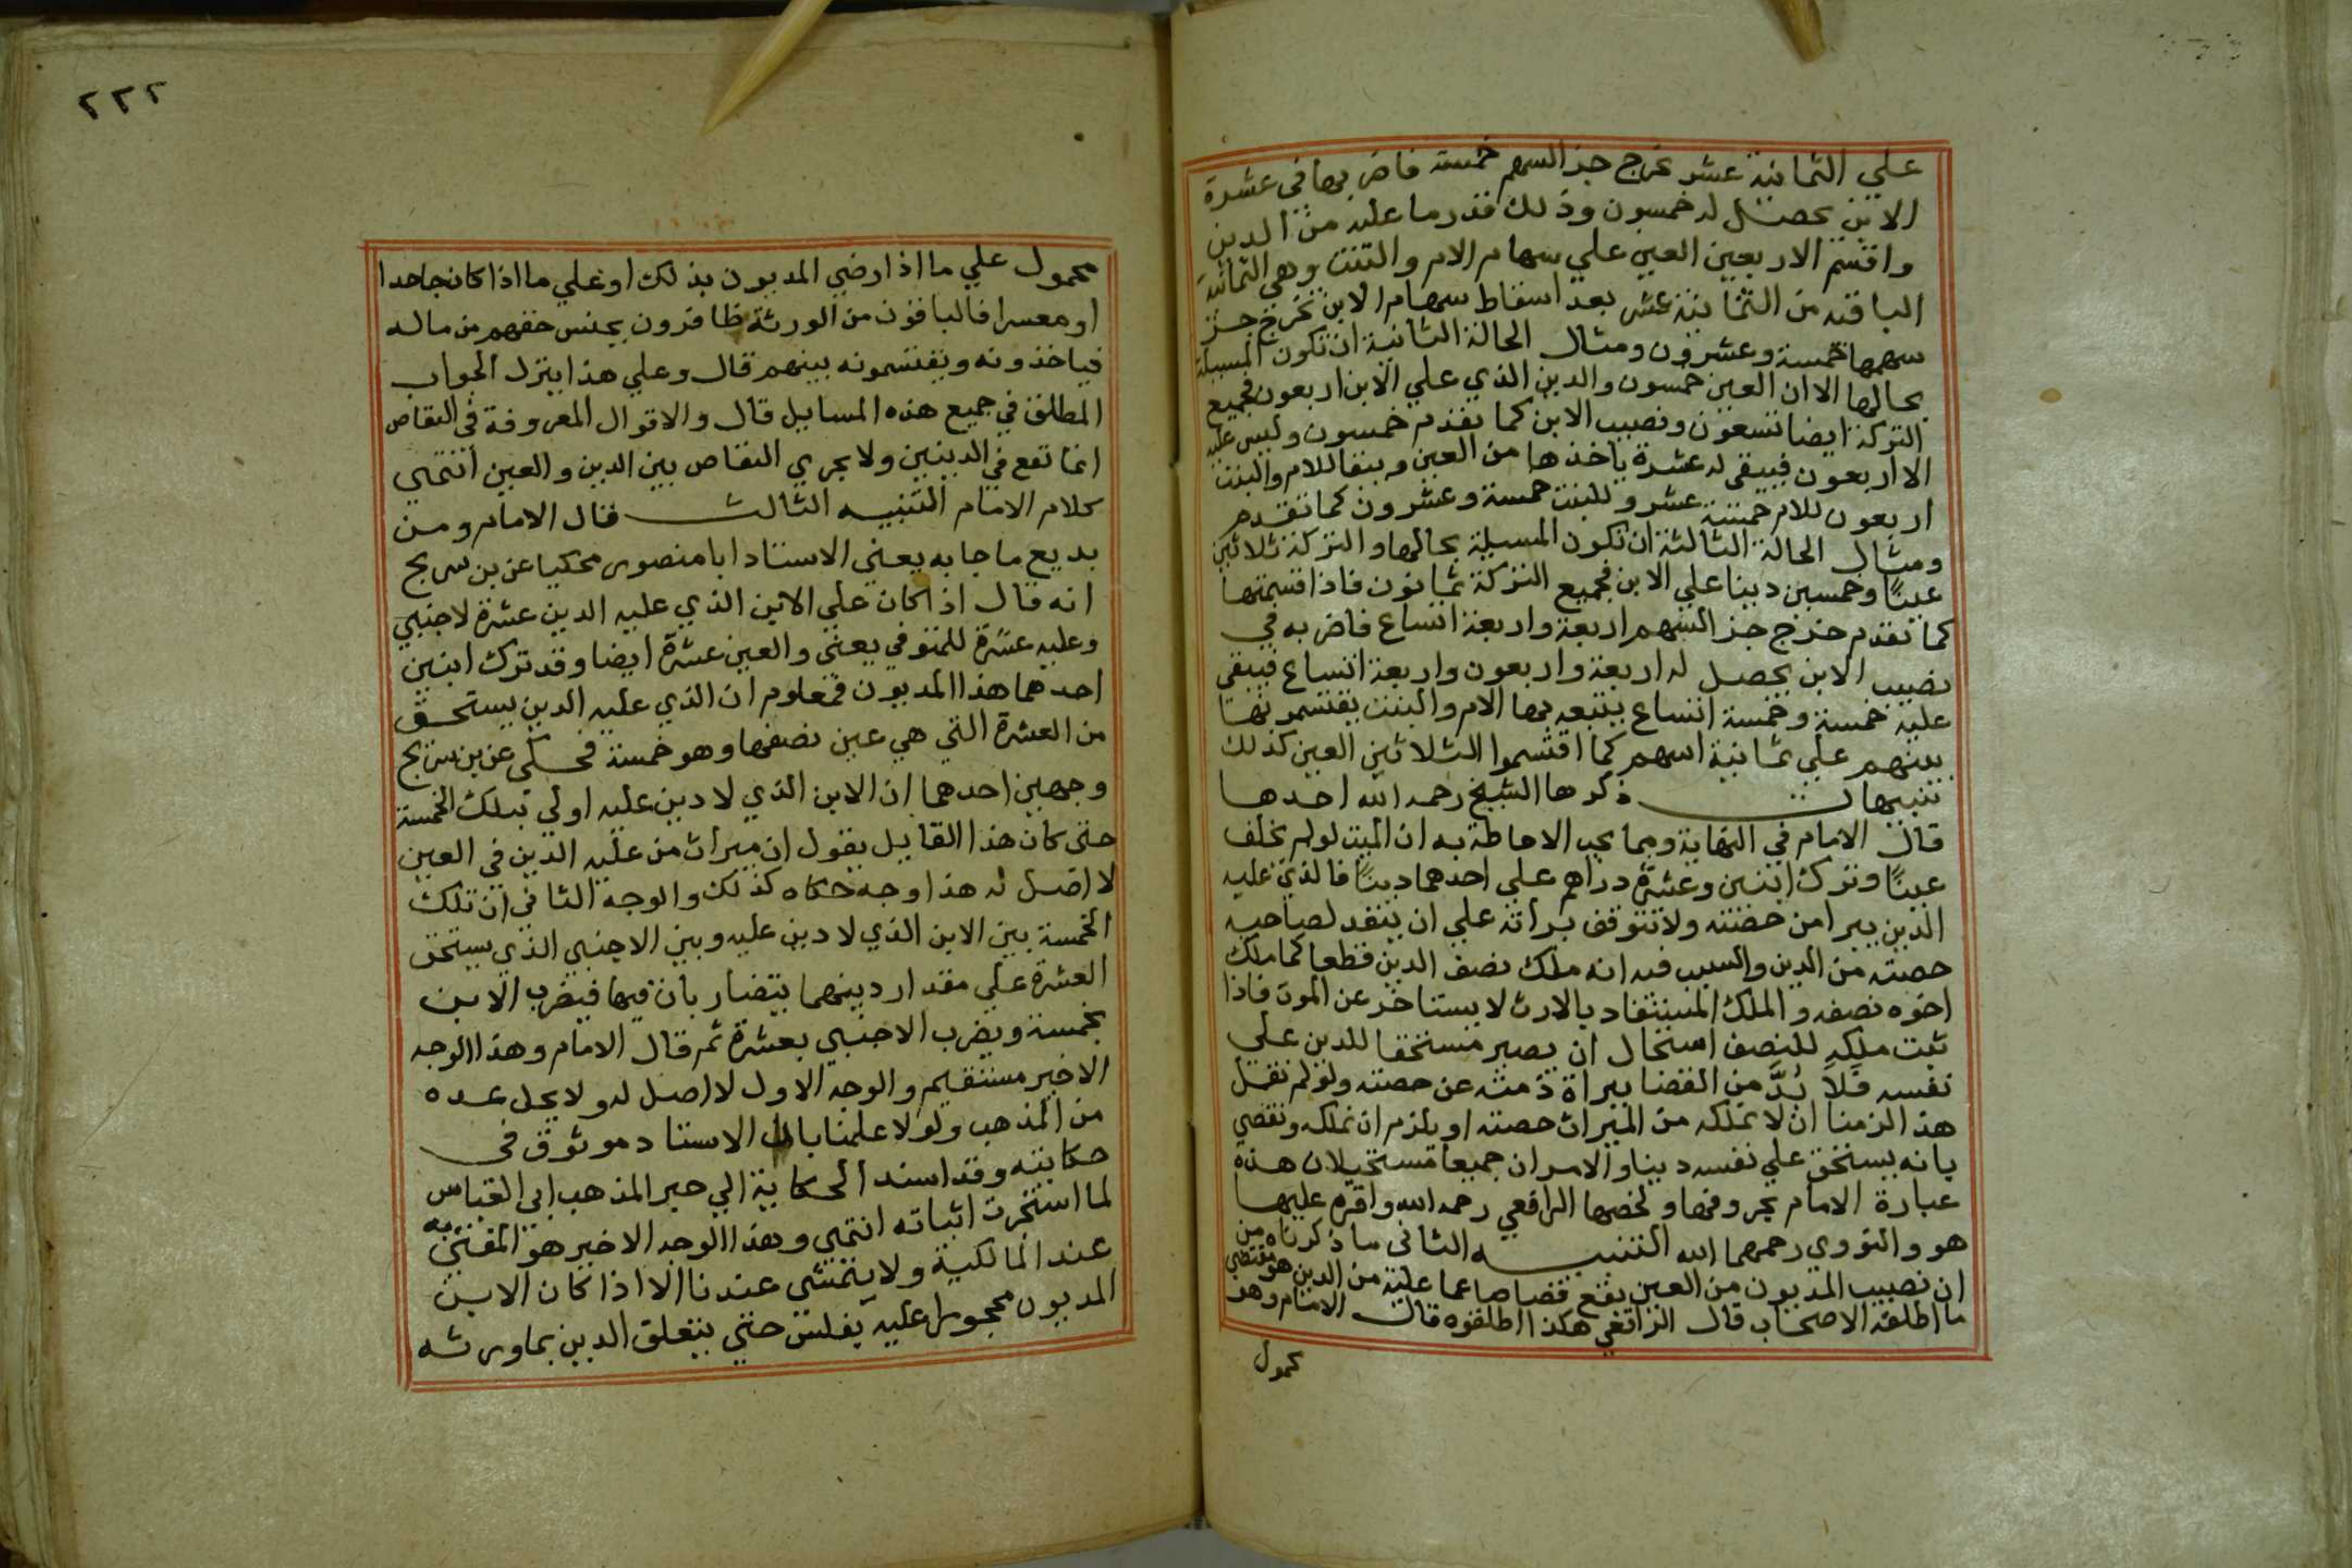 علي الثمانية عشر يخرج جز السهم خمسة فاضربها في عشرة
الابن يحصل له خمسون وذلك قدر ما عليه من الدين
واقسم الاربعين العين علي سهام الام والبنت وهي الثمانية
الباقية من الثمانية عشر بعد اسقاط سهام الابن تخرج جز
سهمها خمسة وعشرون ومثال الحالة الثانية ان تكون المسيلة
بحالها الا ان العين خمسون والدين الذي علي الابن اربعون فجميع
التركة ايضا تسعون ونصيب الابن كما تقدم خمسون وليس عليه
الا اربعون فيبقي له عشرة ياخذها من العين ويبقا للام والبنت
اربعون للام خمسة عشر وللبنت خمسة وعشرون كما تقدم
ومثال الحالة الثالثة ان تكون المسيلة بحالها والتركة ثلاثين
عينًا وخمسين دينا علي الابن فجميع التركة ثمانون فاذا قسمتها
كما تقدم خرج جز السهم اربعة واربعة اتساع فاضربه في
نصيب الابن يحصل له اربعة واربعون واربعة اتساع فيبقي
عليه خمسة وخمسة اتساع يتبعه بها الام والبنت يقتسمونها
بينهم علي ثمانية اسهم كما اقتسموا الثلاثين العين كذلك
تنبيهات ذكرها الشيخ رحمه الله احدها
قال الامام في النهاية ومما يجب الاحاطة به ان الميت لو لم يخلف
عينًا وترك ابنين وعشرة دراهم علي احدهما دينًا فالذي عليه
الدين يبرا من حصته ولا تتوقف براته علي ان ينقد لصاحبه
حصته من الدين والسبب فيه انه ملك نصف الدين قطعا كما ملك
اخوه نصفه والملك المستفاد بالارث لا يستاخر عن الموت فاذا
ثبت ملكه للنصف استحال ان يصير مستحقا للدين علي
نفسه فَلا بُدَّ من القضا ببراة ذمته عن حصته ولو لم نقل
هذا لزمنا ان لا نملكه من الميراث حصته او يلزم ان نملكه ونقضي
بانه يستحق علي نفسه دينا والامران جميعا مستحيلان هذه
عبارة الامام بحروفها ولخصها الرافعي رحمه الله واقره عليها
هو والنووي رحمهما الله التنبيه الثاني ما ذكرناه من
ان نصيب المديون من العين يقع قصاصا عما عليه من الدين هو مقتضي
ما اطلقه الاصحاب قال الرافعي هكذا اطلقوه قال الامام وهو
محمول
٢٢٢
محمول علي ما اذا رضي المديون بذلك او علي ما اذا كان جاحدا
او معسرا فالباقون من الورثة ظافرون بجنس حقهم من ماله
فياخذونه ويقتسمونه بينهم قال وعلي هذا ينزل الجواب
المطلق في جميع هذه المسايل قال والاقوال المعروفة في التقاص
انما تقع في الدينين ولا يجري التقاص بين الدين والعين انتهي
كلام الامام التنبيه الثالث قال الامام ومن
بديع ما جا به يعني الاستاد ابا منصور محكيا عن بن سريج
انه قال اذا كان علي الابن الذي عليه الدين عشرة لاجنبي
وعليه عشرة للمتوفي يعني والعين عشرة ايضا وقد ترك ابنين
احدهما هذا المديون فمعلوم ان الذي عليه الدين يستحق
من العشرة التي هي عين نصفها وهو خمسة فحكي عن بن سريج
وجهين احدهما ان الابن الذي لا دين عليه اولي بتلك الخمسة
حتي كان هذا القايل يقول ان ميراث من عليه الدين في العين
لا اصل له هذا وجه حكاه كذلك والوجه الثاني ان تلك
الخمسة بين الابن الذي لا دين عليه وبين الاجنبي الذي يستحق
العشرة علي مقدار دينهما يتضاربان فيها فيضرب الابن
بخمسة ويضرب الاجنبي بعشرة ثم قال الامام وهذا الوجه
الاخير مستقيم والوجه الاول لا اصل له ولا يحل عده
من المذهب ولولا علمنا بان الاستاد موثوق في
حكايته وقد اسند الحكاية الي حبر المذهب ابي العباس
لما استجرت اثباته انتهي وهذا الوجه الاخير هو المفتي به
عند المالكية ولا يتمشي عندنا الا اذا كان الابن
المديون محجورا عليه بفلس حتي يتعلق الدين بما ورثه